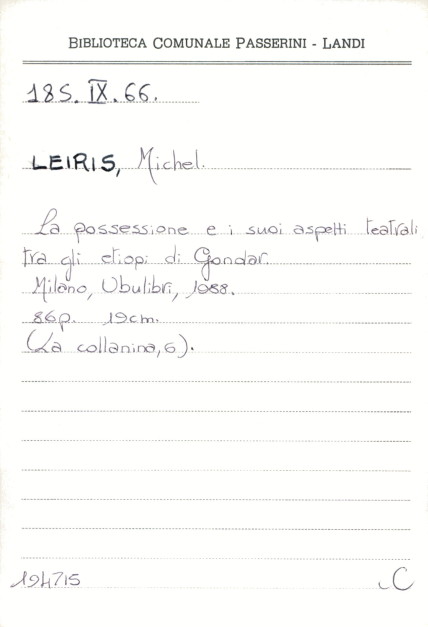 BIBLIOTECA COMUNALE PASSERINI - LANDI
185. IX. 66.
LEIRIS, Michel.
La possessione e i suoi aspetti teatrali
tra gli etiopi di Gondar.
Milano, Ubulibri, 1988.
86p. 19cm.
(La collanina, 6).
194715
C